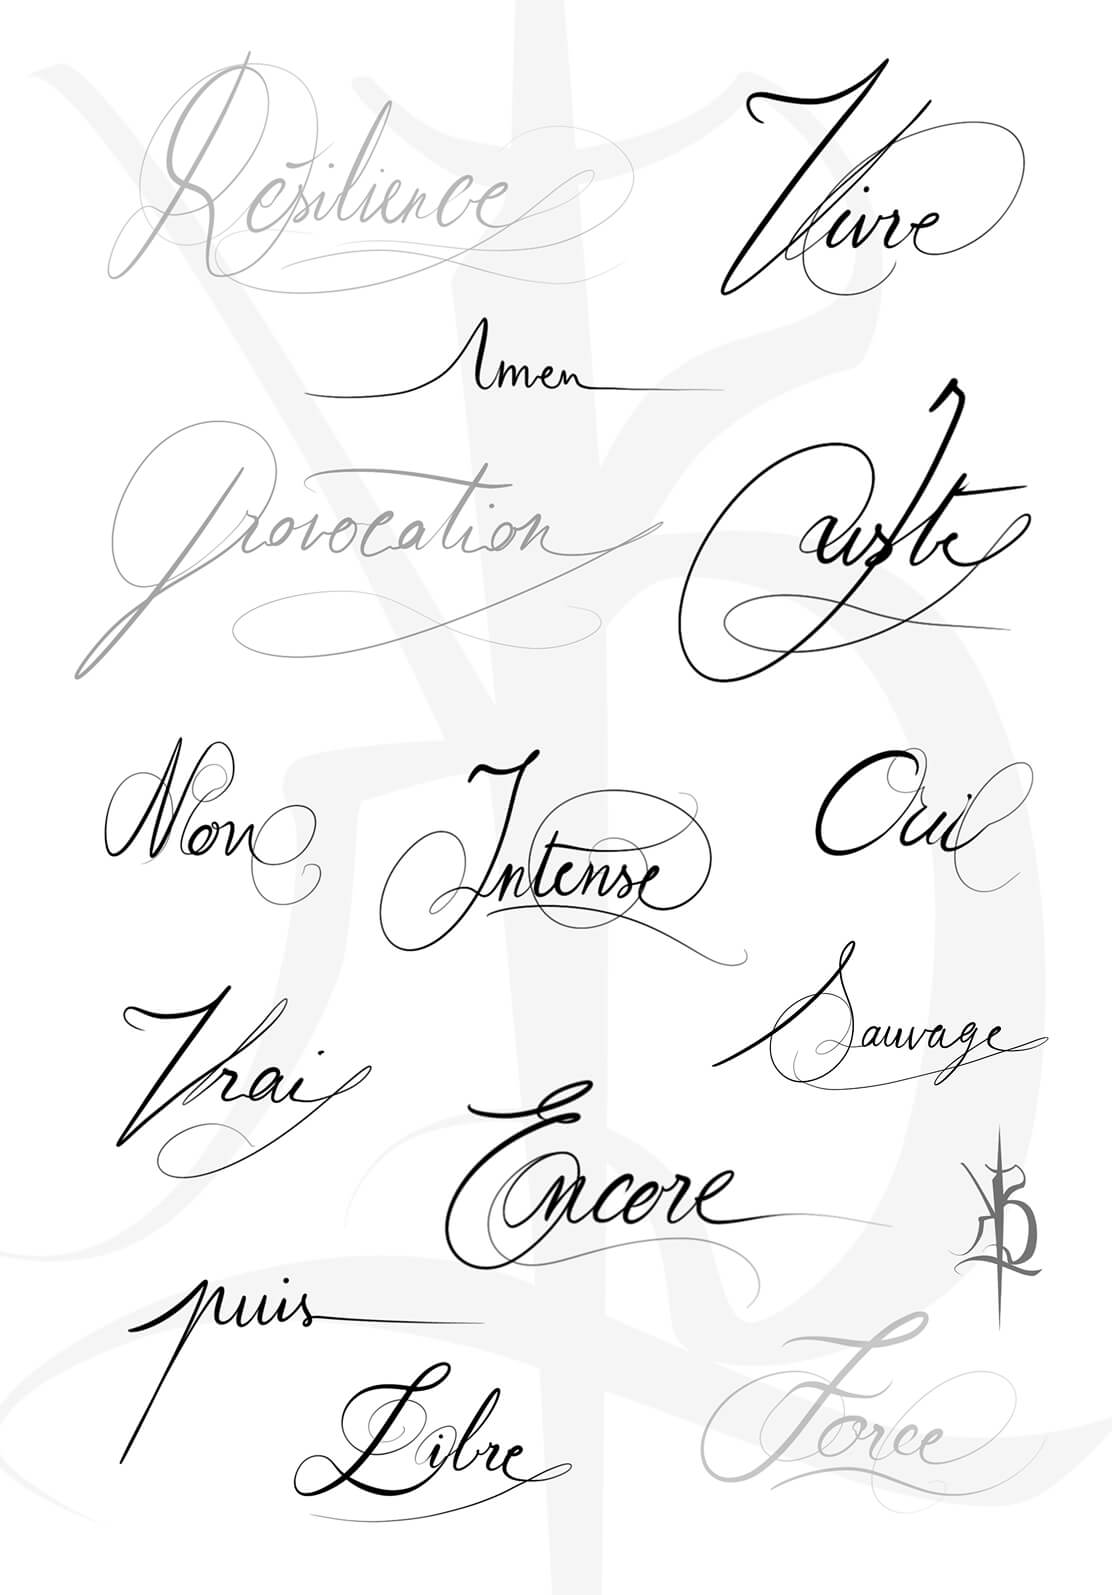 Résilience
Vivre
Amen
Provocation
Non
Intense
Oui
Vrai
Sauvage
Encore
puis
Libre
Force